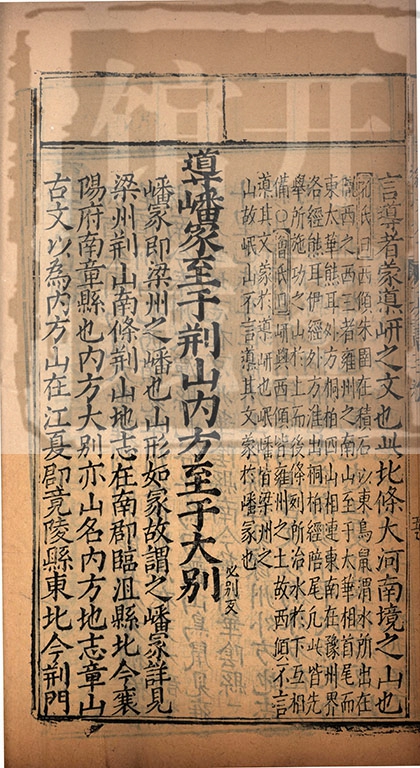 言導者蒙導岍之文也此北條大河南境之山也
孔氏曰西傾朱圉在積石以東鳥鼠渭水所出在
隴西之西三者雍州之南山至于太華相首尾而
東太華熊耳外方桐柏四山相連東南在豫州界
洛經熊耳伊經外方淮出桐柏經陪尾凡此皆先
舉所施功之山於上而後條列所治水於下互相
備○曾氏曰岍與西傾皆雍州之土故西傾不言
導其文蒙於導岍也岷嶓皆梁州之
山故岷山不言導其文蒙於嶓冢也
導嶓冢至于荆山内方至于大别必別反
嶓冢即梁州之嶓也山形如冢故謂之嶓冢詳見
梁州荆山南條荆山地志在南郡臨沮縣北今襄
陽府南章縣也内方大别亦山名内方地志章山
古文以為内方山在江夏郡竟陵縣東北今荆門